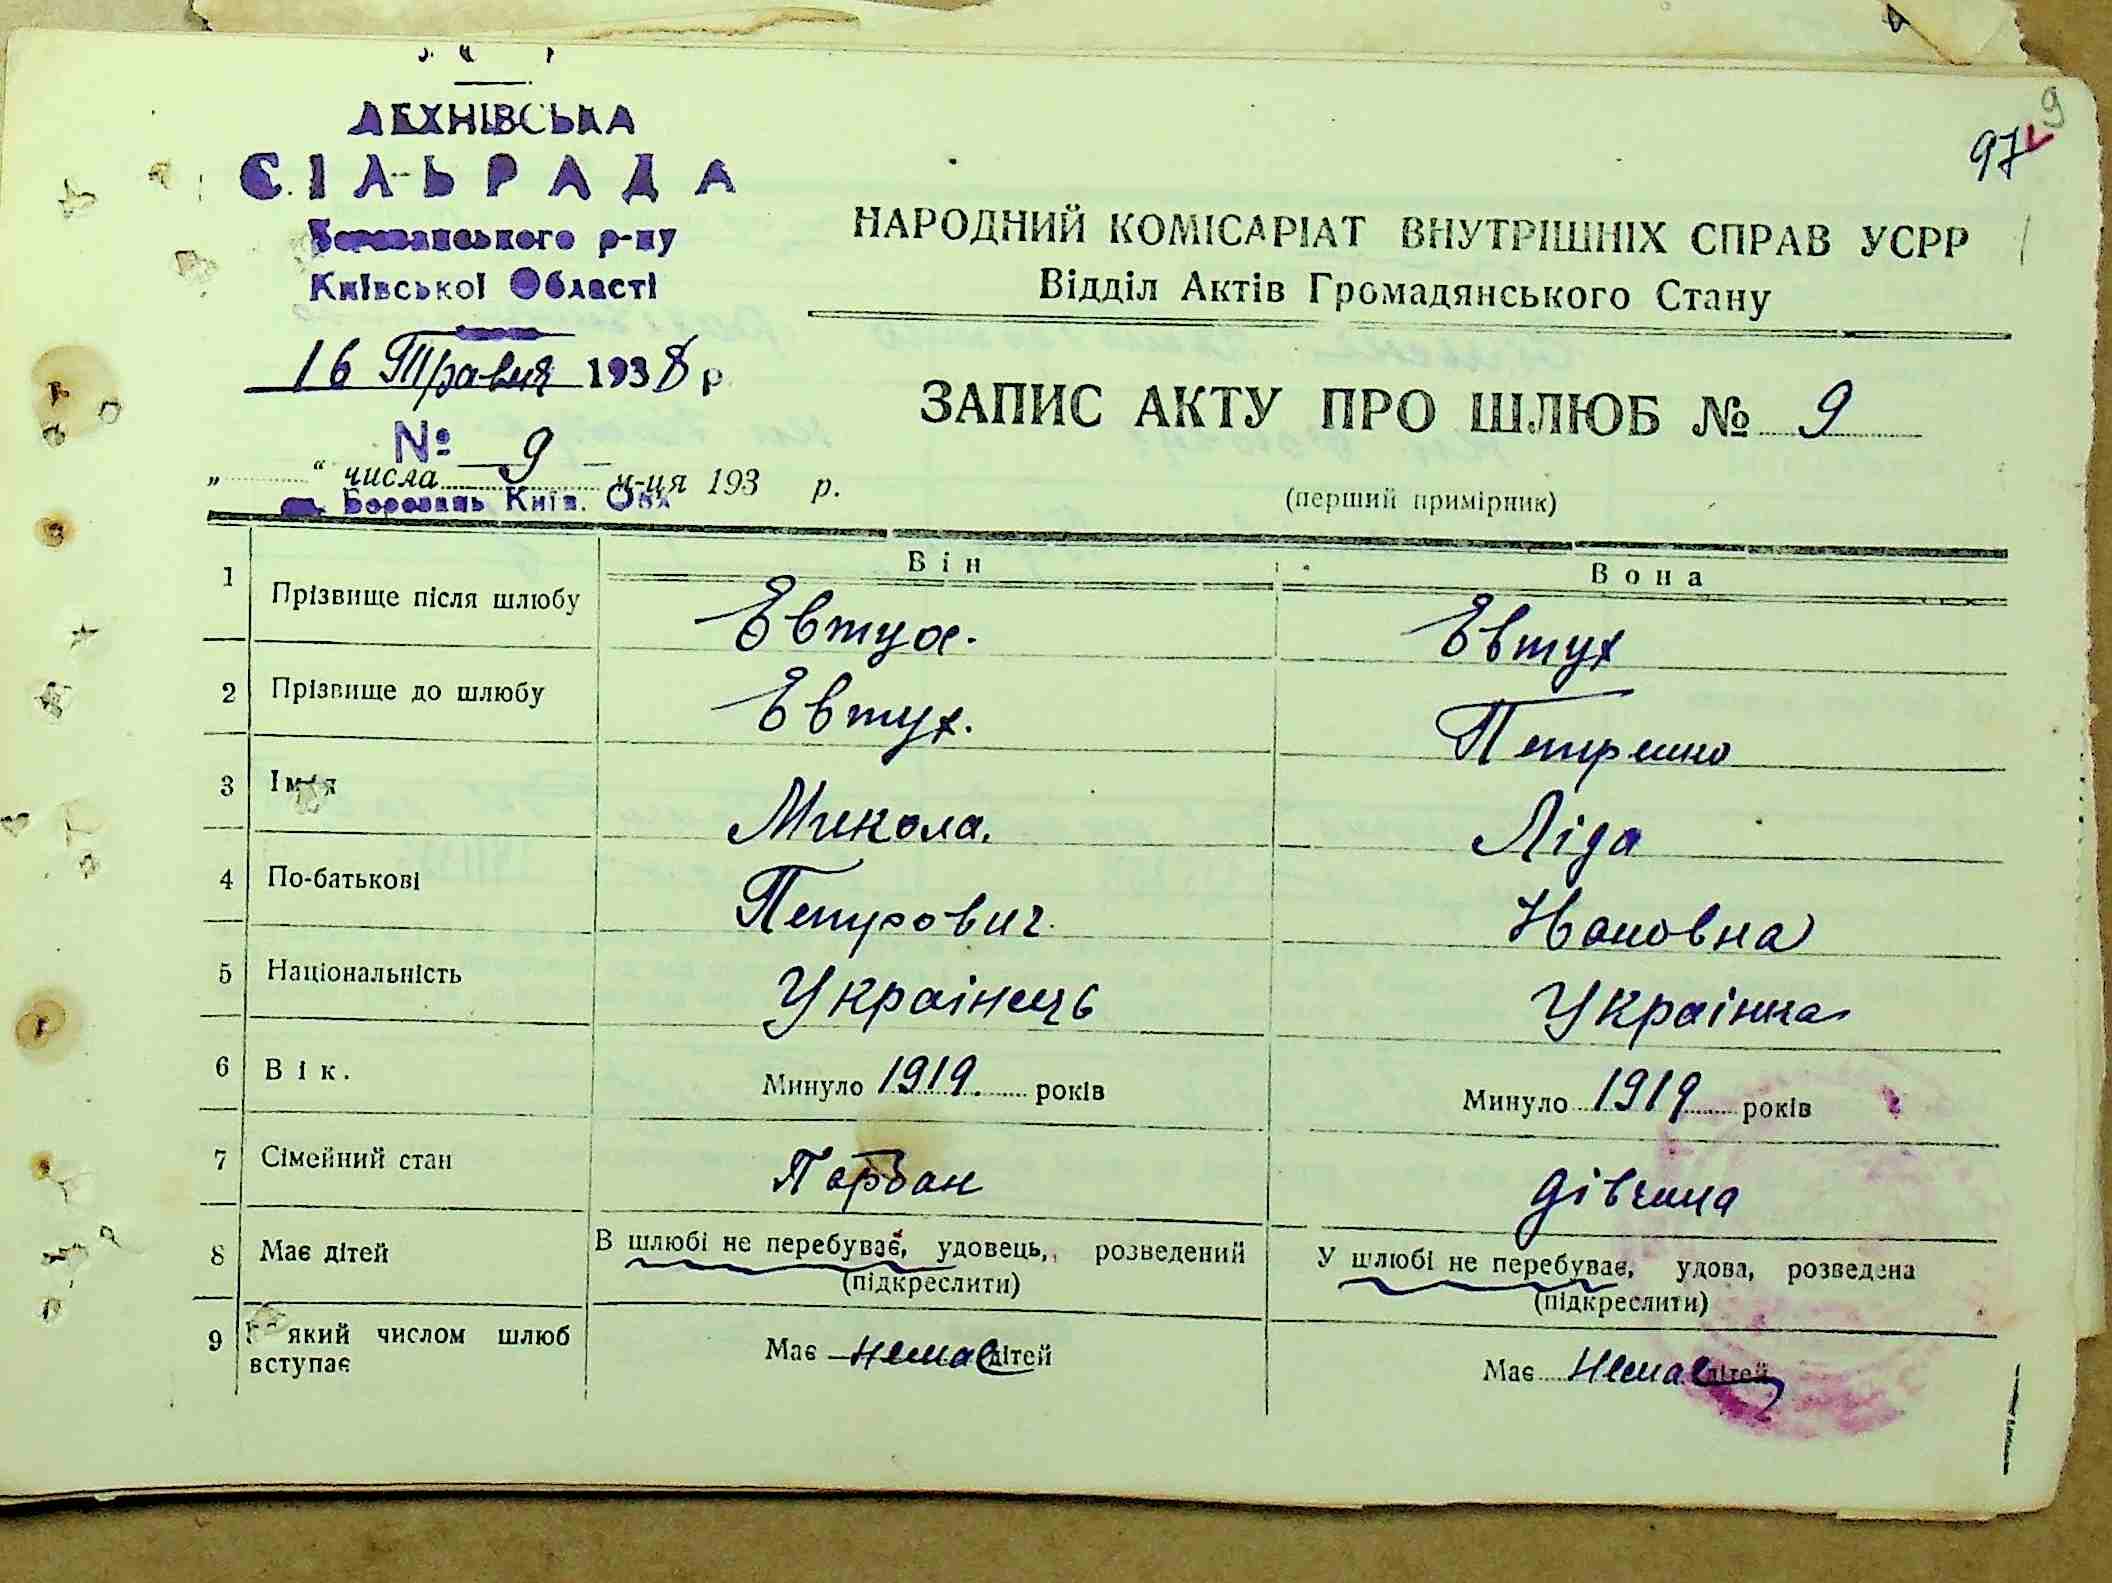 ЛЕХНІВСЬКА
СІЛЬРАДА
Березанського р-ну
Київської Області
16 Травня 1938 р.
№ 9
„ “ числа м-ця 193 р.
Березань Київ. Обл
97
9
НАРОДНИЙ КОМІСАРІАТ ВНУТРІШНІХ СПРАВ УСРР
Відділ Актів Громадянського Стану
ЗАПИС АКТУ ПРО ШЛЮБ № 9
(перший примірник)
Він Вона
1 Прізвище після шлюбу Евтух. Евтух
2 Прізвище до шлюбу Евтух. Петренко
3 Ім'я Микола. Ліда
4 По-батькові Петрович.
5 Національність Українець Українка
6 Вік. Минуло 1919. років Минуло 1919 років
7 Сімейний стан Парбан дівчина
8 Має дітей В шлюбі не перебуває, удовець, розведений У шлюбі не перебуває, удова, розведена
(підкреслити) (підкреслити)
9 який числом шлюб Має немає дітей Має немає дітей
вступає